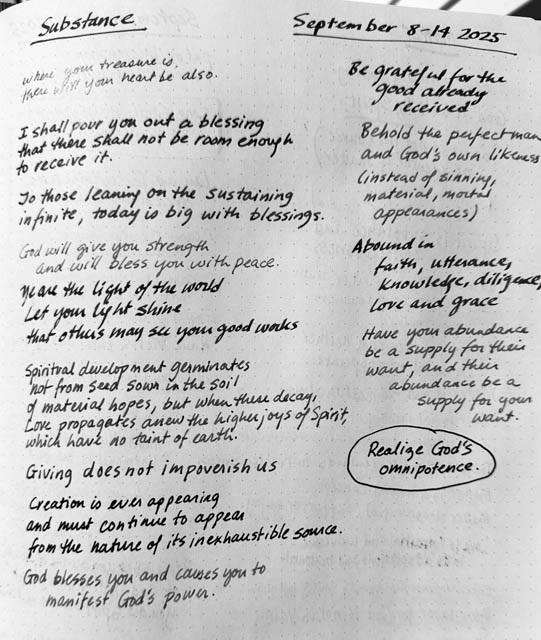 Substance
September 8-14 2025
where your treasure is,
there will your heart be also.
I shall pour you out a blessing
that there shall not be room enough
to receive it.
To those leaning on the sustaining
infinite, today is big with blessings.
God will give you strength
and will bless you with peace.
Ye are the light of the world
Let your light shine
that others may see your good works
Spiritual development germinates
not from seed sown in the soil
of material hopes, but when these decay,
Love propagates anew the higher joys of Spirit,
which have no taint of earth.
Giving does not impoverish us
Creation is ever appearing
and must continue to appear
from the nature of its inexhaustible source.
God blesses you and causes you to
manifest God's power.
Be grateful for the
good already
received
Behold the perfect man
and God's own likeness
(instead of sinning,
material, mortal
appearances)
Abound in
faith, utterance,
knowledge, diligence,
love and grace
Have your abundance
be a supply for their
want, and their
abundance be a
supply for your
want.
Realize God's
omnipotence.